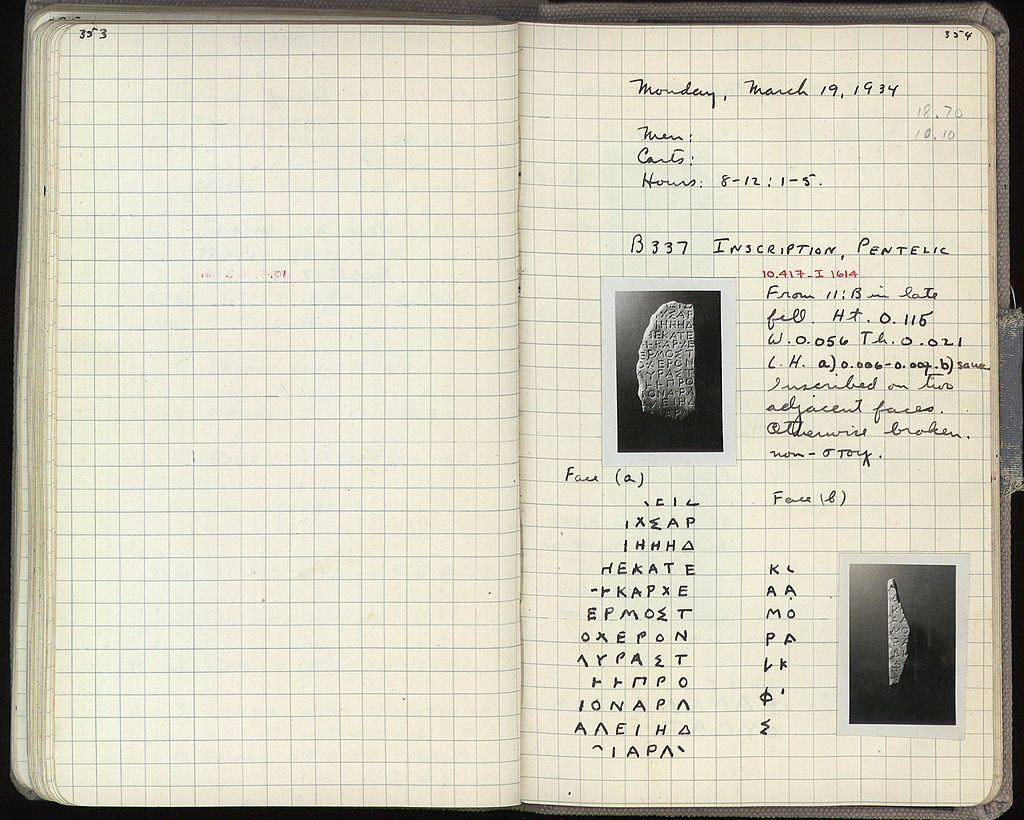 353
354
Monday, March 19, 1934
18.70
Men:
10.10
Carts:
Hours: 8-12: 1-5.
B337 INSCRIPTION, PENTELIC
10.417-I 1614
From 11:B in late
fill. Ht. 0.115
W. 0.056 Th. 0.021
L.H. a) 0.006-0.007. b) same
Inscribed on two
adjacent faces.
Otherwise broken.
non-στοιχ.
Face (a)
ΙΧΣΑΡ
ΙΗΗΗΔ
ΗΕΚΑΤΕ
ͰΚΑΡΧΕ
ΕΡΜΟΣΤ
ΟΧΕΡΟΝ
ΛΥΡΑΣΤ
ͰͰΠΡΟ
ΙΟΝΑΡΛ
ΑΛΕΙΗΔ
ΙΑΡΛ
Face (b)
Κ
ΑΑ
ΜΟ
ΡΑ
Κ
Φ'
Σ